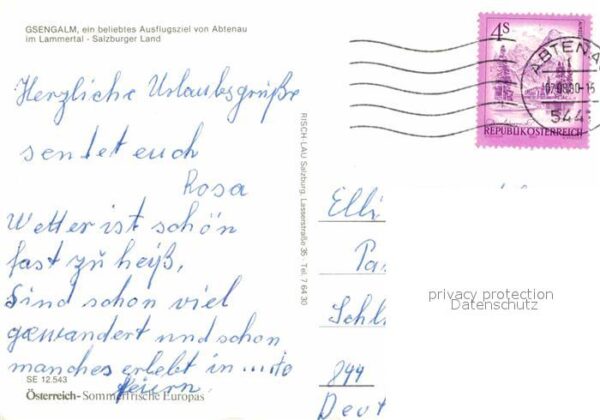 GSENGALM, ein beliebtes Ausflugsziel von Abtenau
im Lammertal - Salzburger Land
Herzliche Urlaubsgrüße
sendet euch
Rosa
Wetter ist schön
fast zu heiß,
Sind schon viel
gewandert und schon
manches erlebt in
feiern.
SE 12.543
Österreich-Sommerfrische Europas
RISCH-LAU Salzburg, Lasserstraße 35 Tel. 7 64 30
4S
REPUBLIK ÖSTERREICH
ABTENA
544
Elli
Pa
Schl
844
Deut
privacy protection
Datenschutz